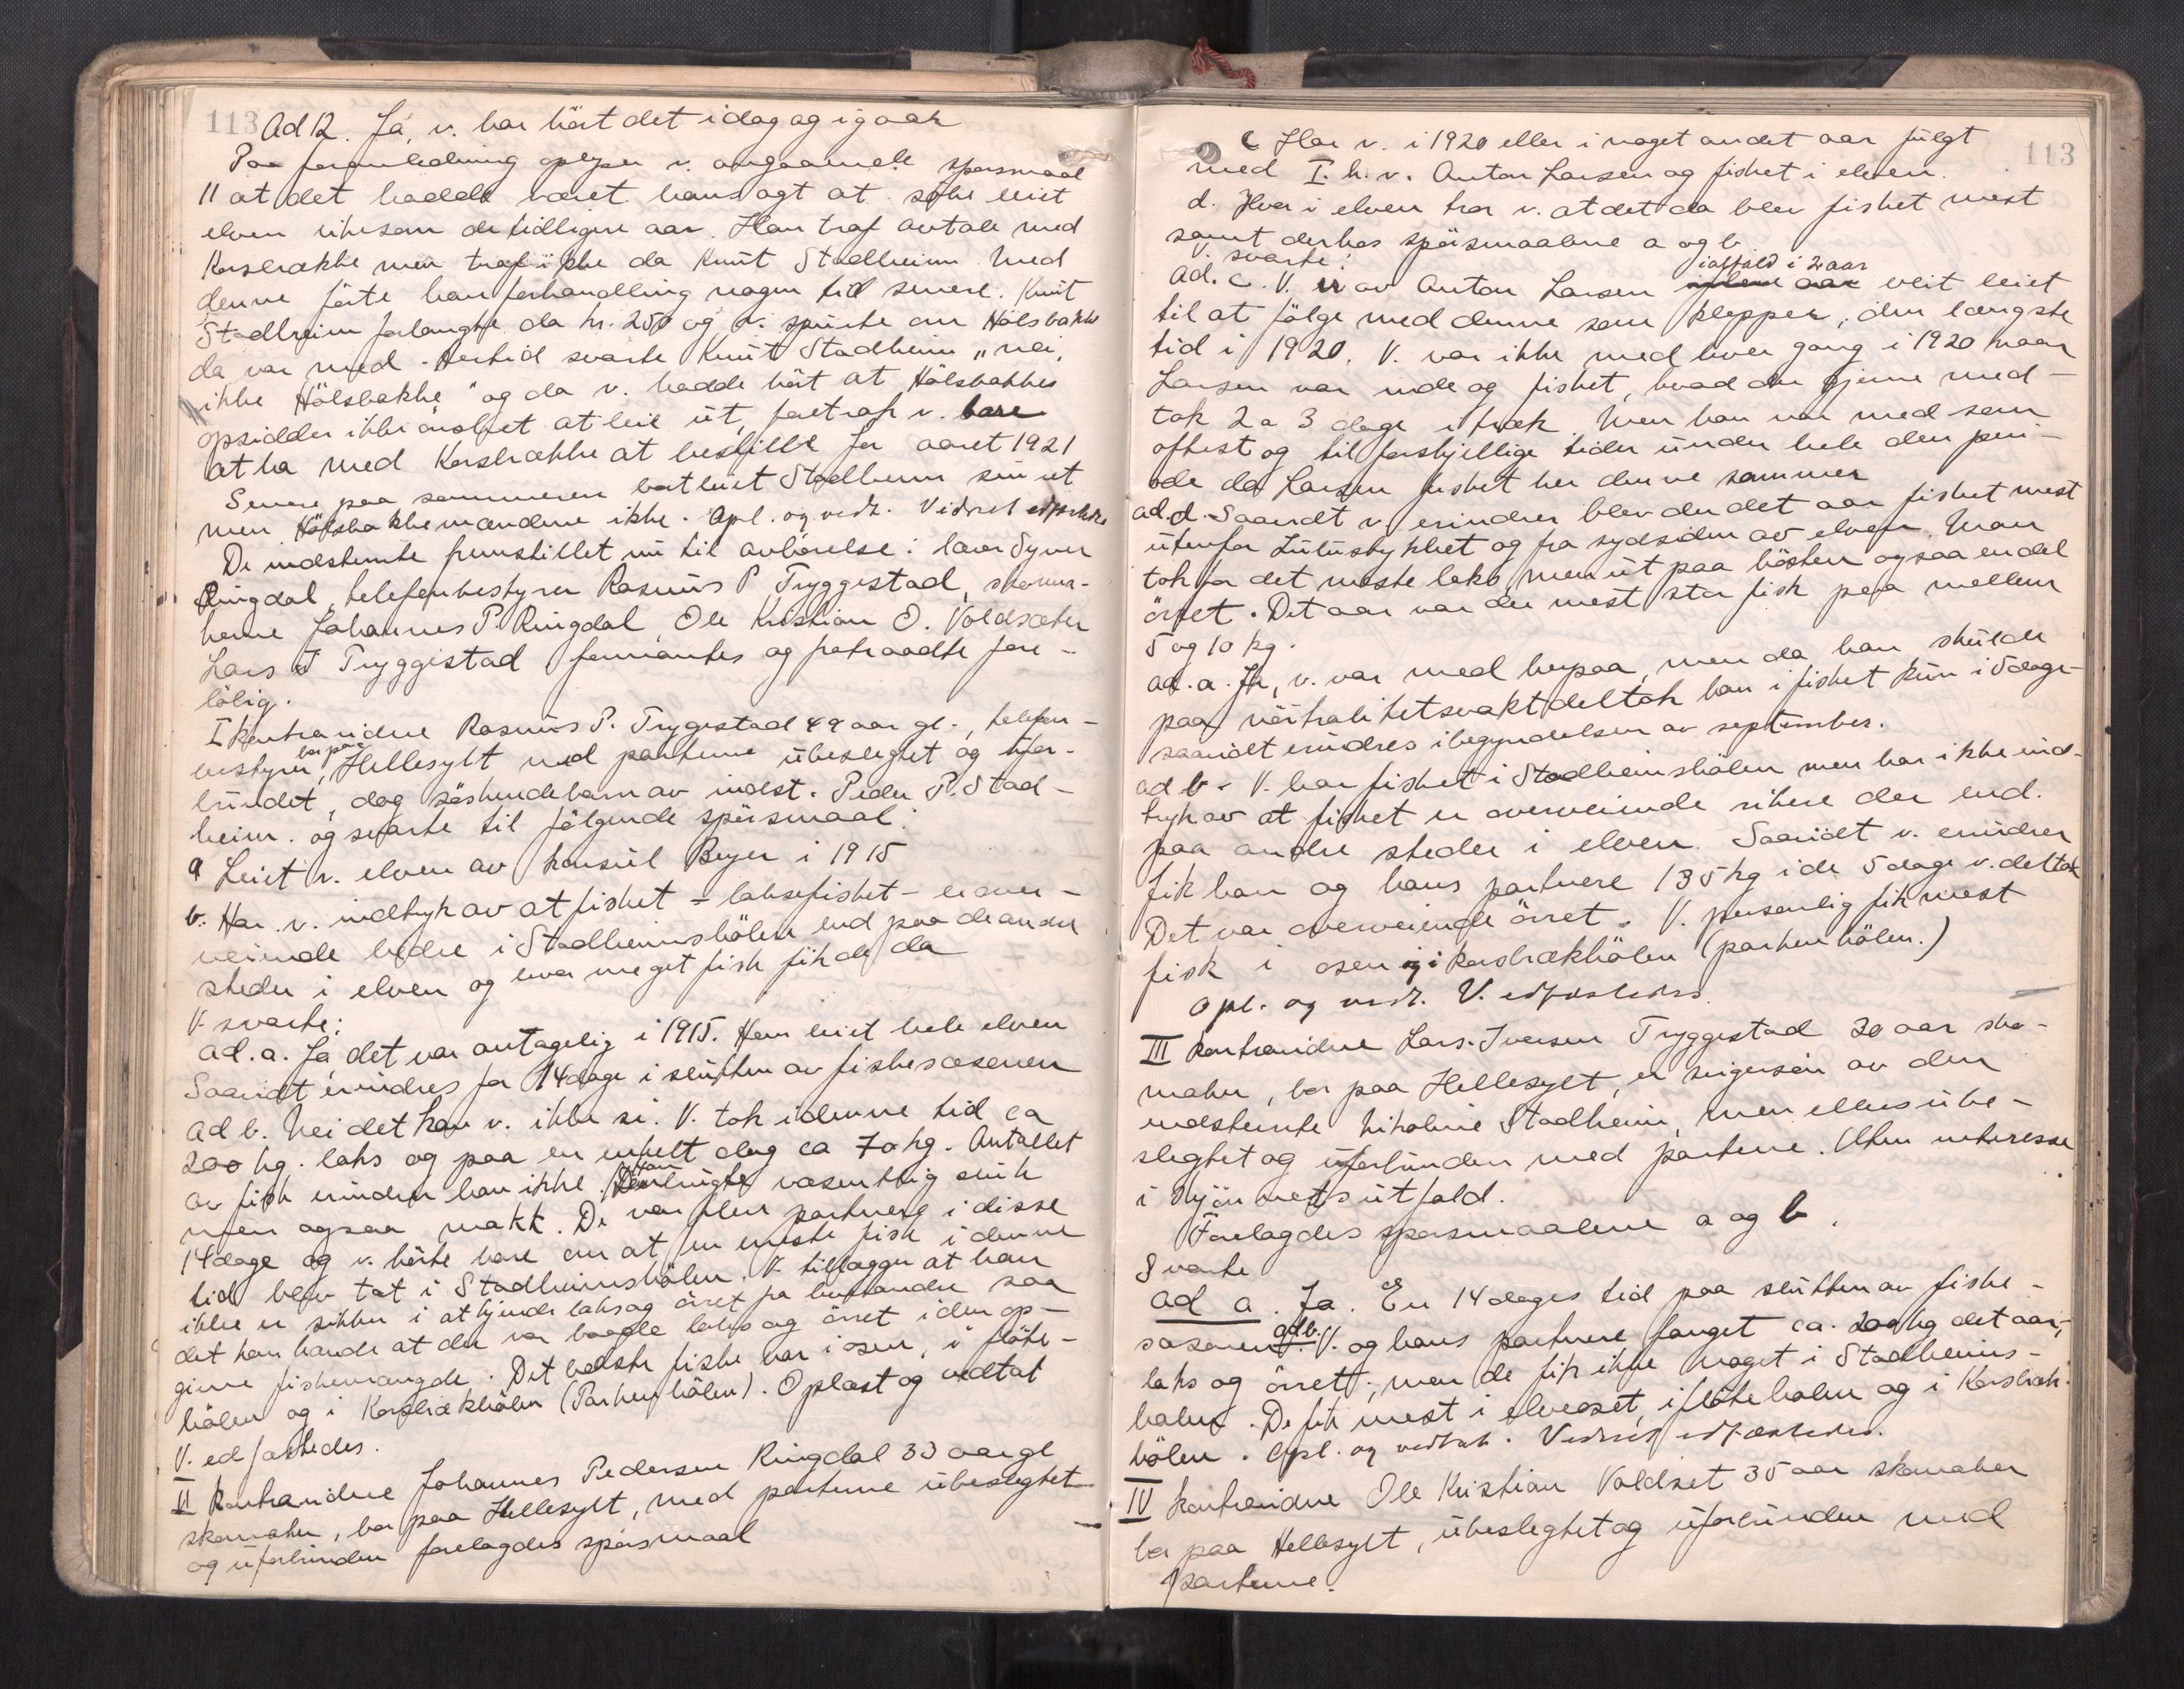 113
Ad 12. Ja, v. har hört det idag og igaar
Paa foranledning oplyser v. angaaende spørsmaal
11 at det hadde været hans agt at søke leiet
elven likesom de tidligere aar. Han traf avtale med
Korsbrække men traf ikke da Knut Stadheim. Med
denne förte han forhandling nogen tid senere. Knut
Stadheim forlangte da kr. 250 og v. spurte om Hölsbakke
da var med. Hertil svarte Knut Stadheim "nei,
ikke Hölsbakke" og da v. hadde hört at Hölsbakkes
opsidder ikke önsket at leie ut, foretrak v. bare
at ha med Korsbrække at bestille for aaret 1921
Senere paa sommeren bortleiet Stadheim sin ret
men Hölsbakkemændene ikke. Opl. og vedt. Vidnet edfæstedes
De indstevnte fremstillet nu til avhörelse: lærer Syver
Ringdal, telefonbestyrer Rasmus P. Tryggestad, skoma-
kerne Johannes P. Ringdal, Ole Kristian O. Voldsæter
Lars I Tryggestad formantes og fratraadte fore-
löbig.
I kontravidne Rasmus P. Tryggestad 49 aar gl., telefon-
bestyrer, bor paa Hellesylt med parterne ubeslegtet og ufor-
bundet, dog söskendebarn av indst. Peder P. Stad-
heim. og svarte til fölgende spörsmaal:
a Leiet v. elven av konsul Beyer i 1915
b. Har v. indtryk av at fisket - laksefisket - er over-
veiende bedre i Stadheimshölen end paa de andre
steder i elven og hvor meget fisk fik de da
V. svarte:
ad. a. Ja det var antagelig i 1915. Han leiet hele elven
Saavidt erindres for 14 dage i slutten av fiskesæsonen
ad b. Nei det kan v. ikke si. V. tok i denne tid ca
200 kg. laks og paa en enkelt dag ca 70 kg. Antallet
av fisk erindrer han ikke. Han brugte væsentlig sluk
men ogsaa makk. De var flere partnere i disse
14 dage og v. hörte bare om at en eneste fisk i denne
tid blev tat i Stadheimshölen. V. tillægger at han
ikke er sikker i at kjende laks og örret fra hverandre saa
det kan hænde at der var baade laks og örret i den op-
givne fiskemængde. Det bedste fiske var i osen, i flöte-
hölen og i Korsbrækhölen (Parkenhölen). Oplæst og vedtat
V. edfæstedes.
II kontravidne Johannes Pedersen Ringdal 33 aar gl
skomaker, bor paa Hellesylt, med parterne ubeslegtet
og uforbunden forelagdes spörsmaal
113
c Har v. i 1920 eller i noget andet aar fulgt
med I. k. v. Anton Larsen og fisket i elven.
d. Hvor i elven tror v. at det da blev fisket mest
samt derhos spörsmaalene a og b
V. svarte:
ad. c. V. er av Anton Larsen iafald i 2 aar veit leiet
til at fölge med denne som klepper, den længste
tid i 1920. V. var ikke med hver gang i 1920 naar
Larsen var inde og fisket, hvad der gjerne med-
tok 2 a 3 dage i træk. Men han var med som
oftest og til forskjellige tider under hele den peri-
ode da Larsen fisket her denne sommer
ad. d. Saavidt v. erindrer blev der det aar fisket mest
utenfor Lutustykket og fra sydsiden av elven. Man
tok for det meste laks, men ut paa hösten ogsaa en del
örret. Det aar var der mest stor fisk paa mellem
5 og 10 kg.
ad. a. Ja, v. var med herpaa, men da han skulde
paa nöitralitetsvakt deltok han i fisket kun i 5 dage
saavidt erindres i begyndelsen av september.
ad b. V. har fisket i Stadheimshölen men har ikke ind-
tryk av at fisket er overveiende rikere der end
paa andre steder i elven. Saavidt v. erindrer
fik han og hans partnere 135 kg i de 5 dage v. deltok
Det var overveiende örret. V. personlig fik mest
fisk i osen og i Korsbrækhölen (parkenhölen.)
Opl. og vedt. V. edfæstedes.
III kontravidne Lars Iversen Tryggestad 30 aar sko-
maker, bor paa Hellesylt, er svigersön av den
indstevnte Nikoline Stadheim, men ellers ube-
slegtet og uforbunden med parterne. Uten interesse
i skjönnets utfald.
Forelagdes spörsmaalene a og b.
Svarte
ad a. Ja. En 14 dages tid paa slutten av fiske-
sæsonen. ad b. V. og hans partnere fanget ca. 200 kg det aar,
laks og örret; men de fik ikke noget i Stadheims-
hölen. De fik mest i elveoset, i flötehölen og i Korsbræk-
hölen. Opl. og vedtat. Vidnet edfæstedes.
IV kontravidne Ole Kristian Voldset 35 aar skomaker
bor paa Hellesylt, ubeslegtet og uforbunden med
parterne.